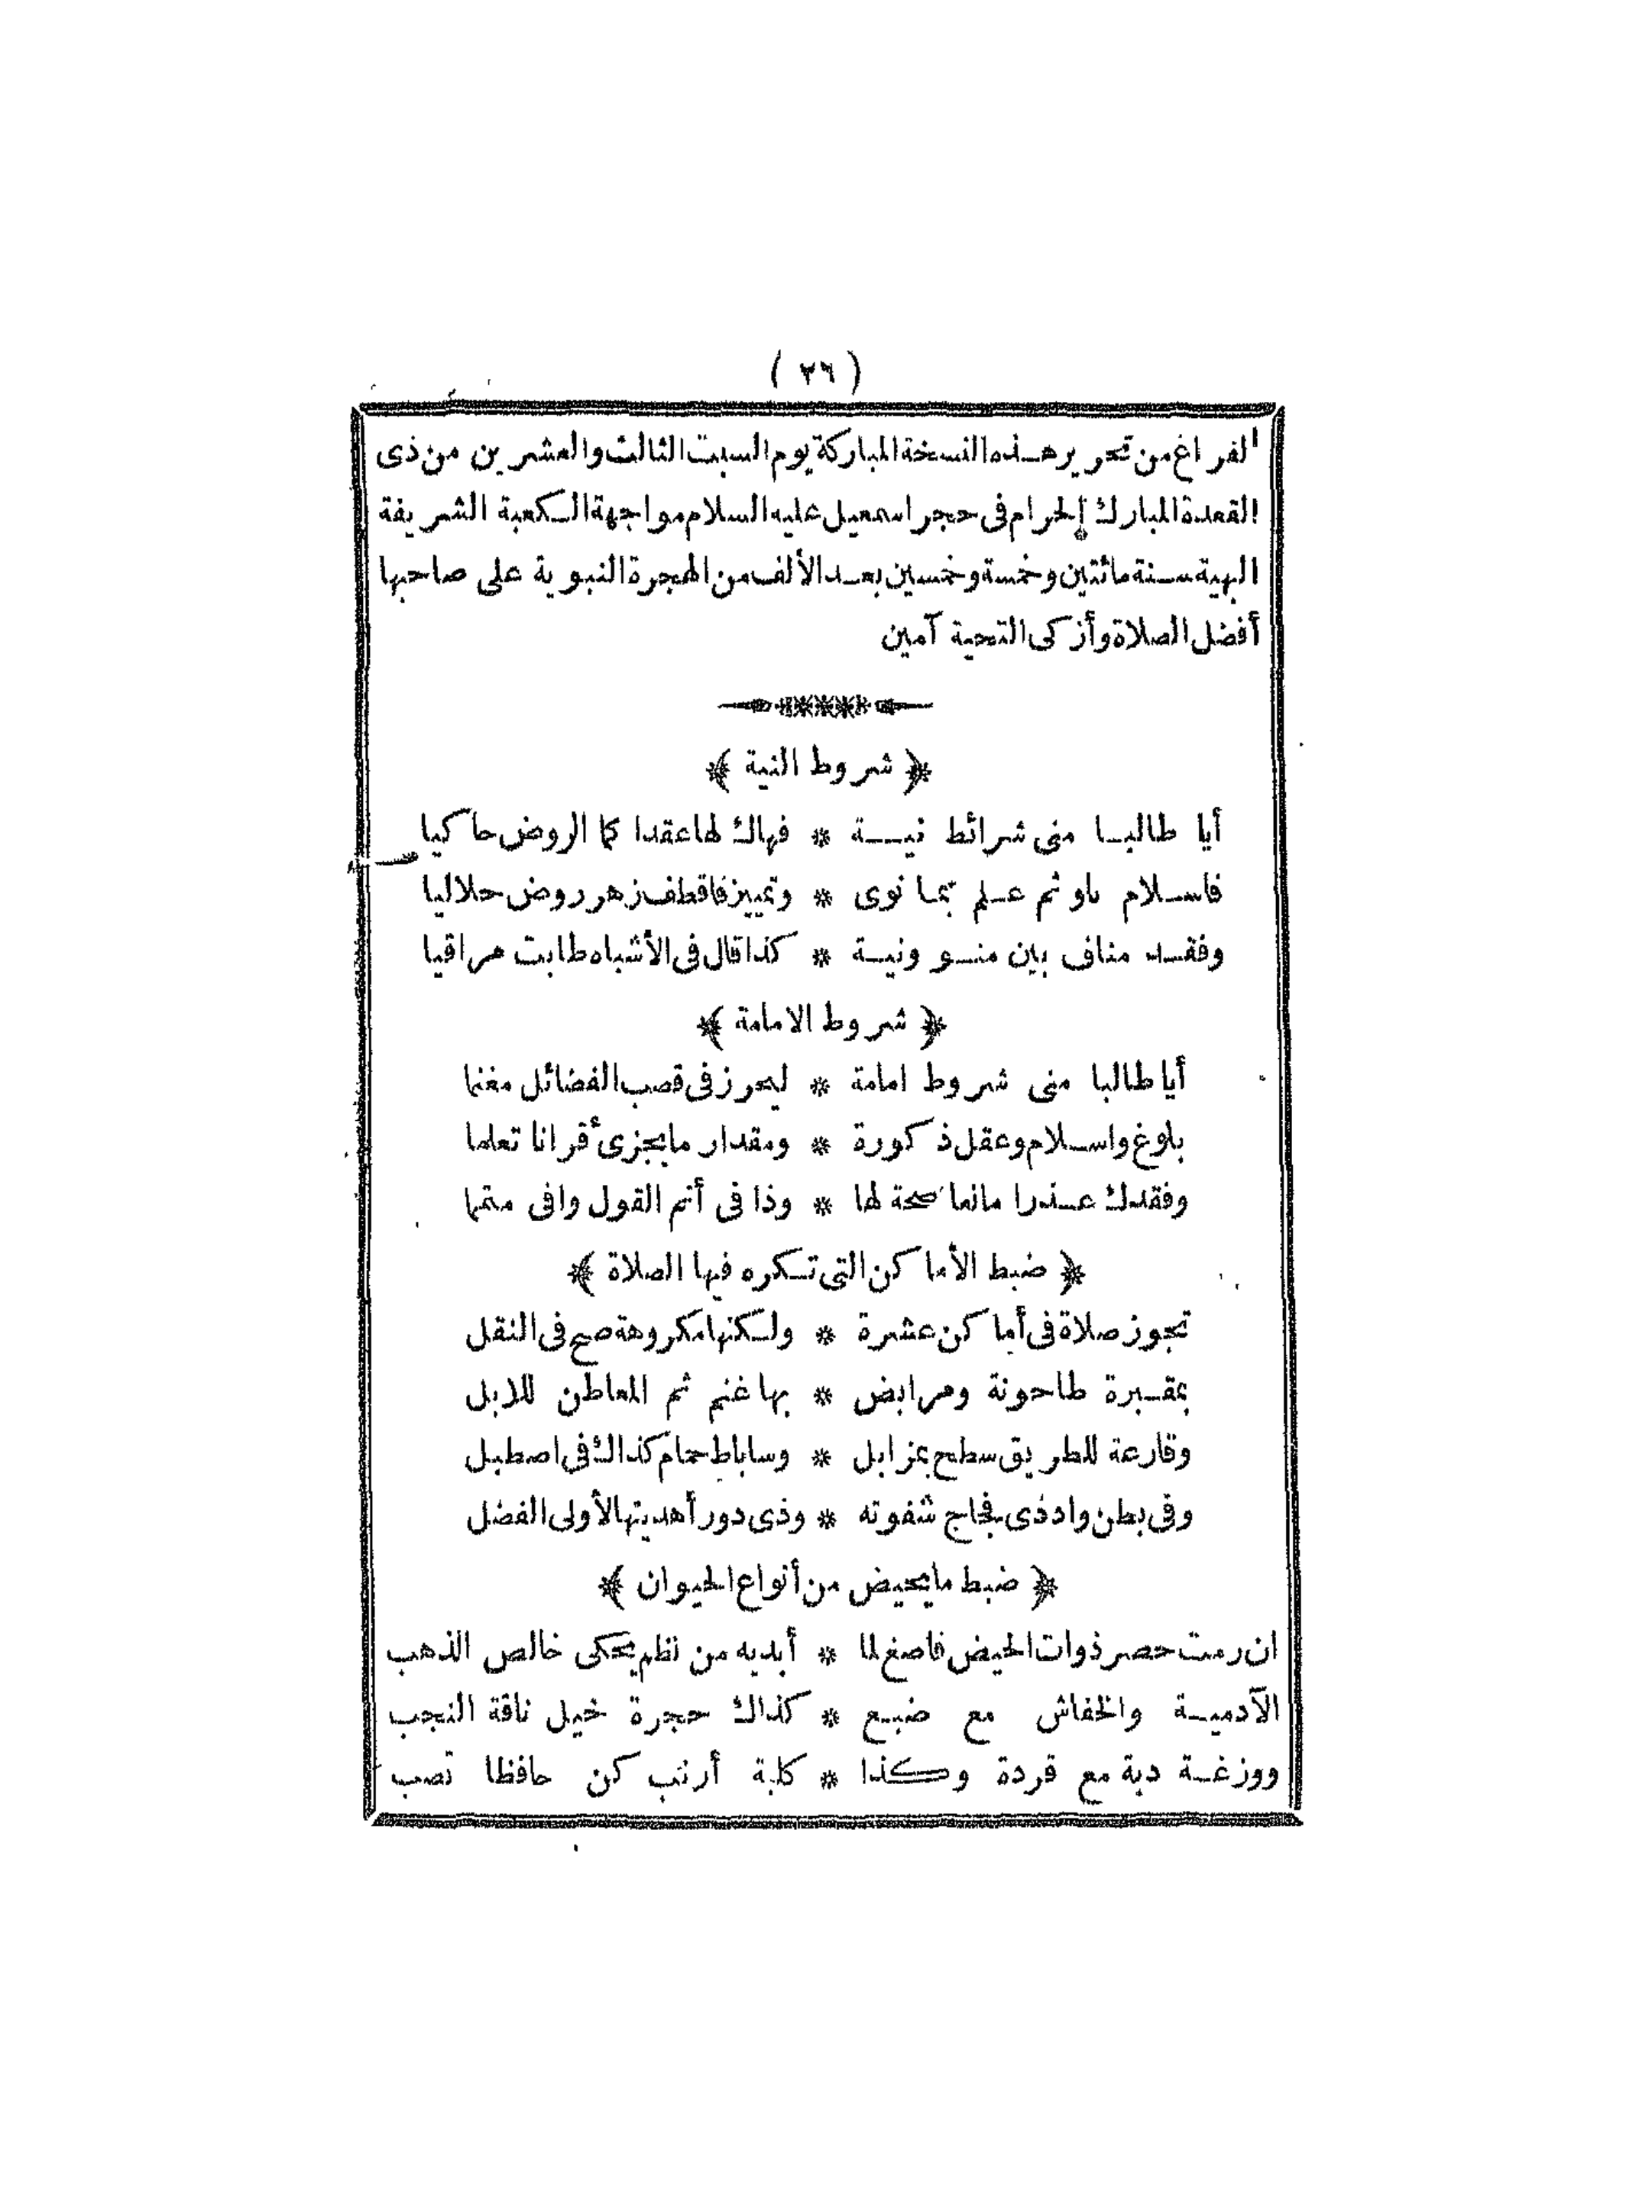 ( ٢٦ )
الفراغ من تحرير هذه النسخة المباركة يوم السبت الثالث والعشرين من ذى
القعدة المبارك الحرام فى حجر اسمعيل عليه السلام مواجهة الكعبة الشريفة
البهية سنة مائتين وخمسة وخمسين بعد الألف من الهجرة النبوية على صاحبها
أفضل الصلاة وأزكى التحية آمين
﴿ شروط النية ﴾
أيا طالبا منى شرائط نية * فهاك لها عقدا كما الروض حاكيا
فاسلام ناو ثم علم بما نوى * وتمييز فاقطف زهر روض حلاليا
وفقد مناف بين منو ونية * كذا قال فى الأشباه طابت مراقيا
﴿ شروط الامامة ﴾
أيا طالبا منى شروط امامة * ليحرز فى قصب الفضائل مغنما
بلوغ واسلام وعقل ذكورة * ومقدار ما يجزى أقرانا تعلما
وفقدك عذرا مانعا صحة لها * وذا فى أتم القول وافى متمما
﴿ ضبط الأماكن التى تكره فيها الصلاة ﴾
تجوز صلاة فى أماكن عشرة * ولكنها مكروهة صح فى النقل
بمقبرة طاحونة ومرابض * بها غنم ثم المعاطن للابل
وقارعة للطريق سطح بمزابل * وساباط حمام كذاك فى اصطبل
وفى بطن واد ذى بفجاج شفوته * وذى دور أهديتها لأولى الفضل
﴿ ضبط ما يحيض من أنواع الحيوان ﴾
ان رمت حصر ذوات الحيض فاصغ لما * أبديه من نظم يحكى خالص الذهب
الآدمية والخفاش مع ضبع * كذاك حجرة خيل ناقة النجب
ووزغة دبة مع قردة وكذا * كلبة أرنب كن حافظا تصب